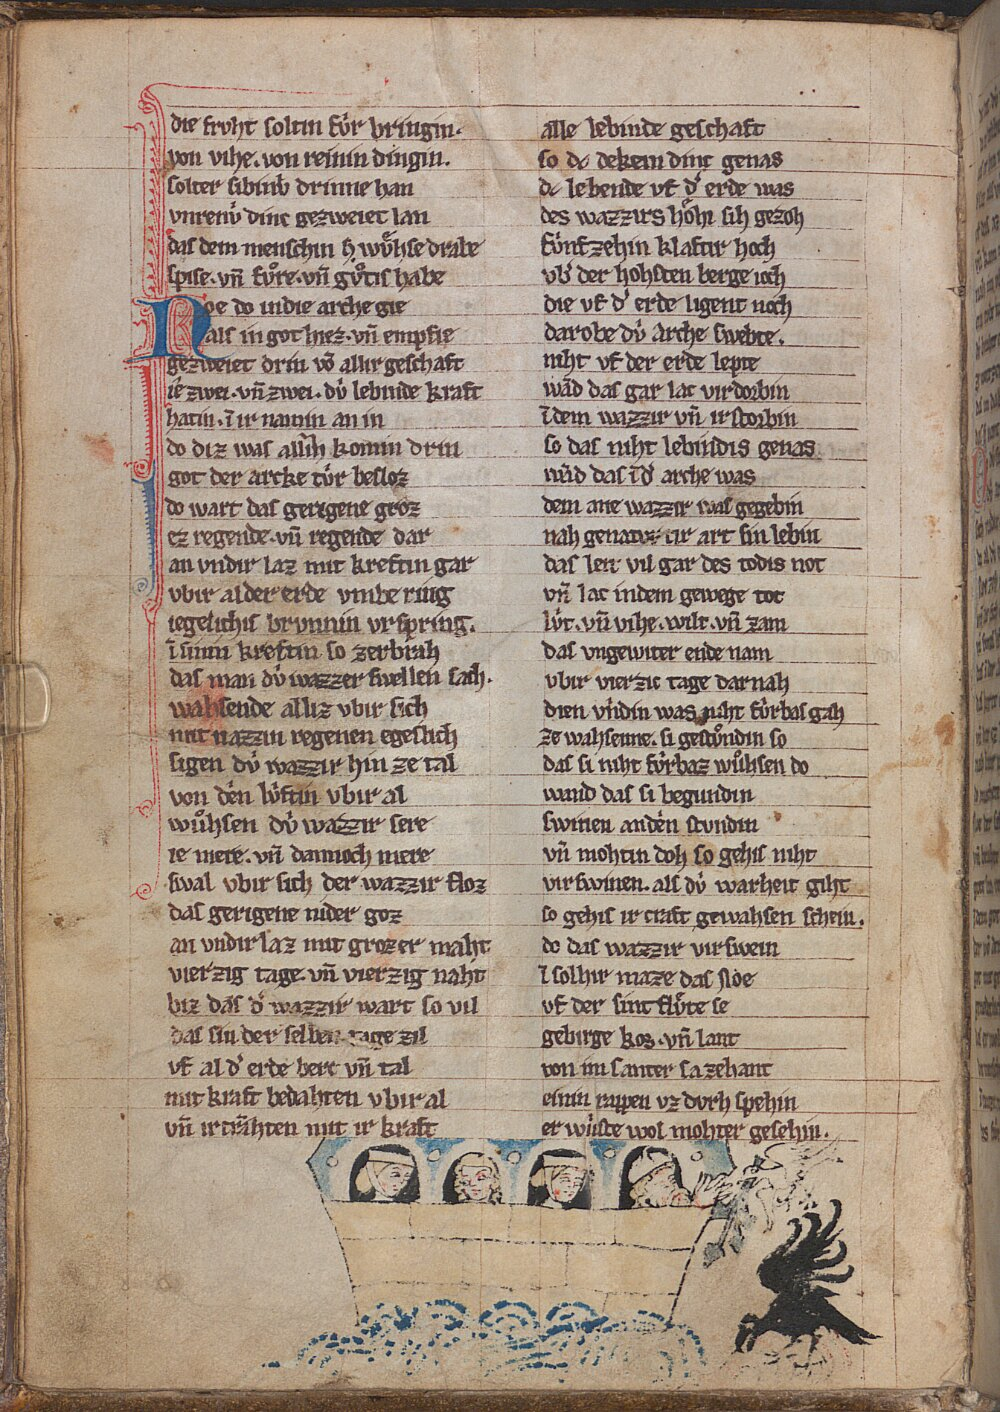 die fruht soltin fúr bringin.
von vihe. von reinin dingin.
solter sibinv̓ drinne han
vnreinv̓ dinc gezweiet lan
das dem menschin h wv̊hse drabe
spise. vn̄ fv̊re. vn̄ gv̊tis habe
Noe do indie arche gie
als in got hiez. vn̄ empfie
gezweiet drin vō allir geschaft
ie zwei. vn̄ zwei. dv́ lebinde kraft
hatin. ī ir namin an in
do diz was komin drin
got der arche túr besloz
do wart das gerigene groz
ez regende. vn̄ regende dar
an vndir laz mit kreftin gar
vbir al der erde vmbe ring
iegelichis brvnnin vrspring.
ī sinin kreftin so zerbrah
das man dv́ wazzer swellen sach.
wahsende alliz vbir sich
mit nazzin regenen egeslich
sigen dv́ wazzir hin ze tal
von dēn lv́ftin vbir al
wv̊hsen dv́ wazzir sere
ie mere. vn̄ dannoch mere
swal vbir sich der wazzir floz
das gerigene nider goz
an vndir laz mit grozer maht
vierzig tage vn̄ vierzig naht
biz das d̓ wazzir wart so vil
das sin der selben tage zil
vf al d̓ erde berc vn̄ tal
mit kraft bedahten vbir al
vn̄ irtrāhten mit ir kraft
alle lebinde geschaft
so dc dekein dinc genas
dc lebende vf d̓ erde was
des wazzirs hŏhi sih gezoh
fúnfzehin klaftir hoch
vb̓ der hohsten berge ioch
die vf d̓ erde ligent noch
dar obe dv́ Arche swebte.
niht vf der erde lepte
wād das gar lac virdorbin
ī dem wazzir vn̄ irstorbin
so das niht lebindis genas
wād das ī d̓ arche was
dem ane wazzir was gegebin
nah genatvr ir art sin lebin
das leit vil gar des todis not
vn̄ lac indem gewege tot
lv́t. vn̄ vihe. wilt. vn̄ zam
das vngewiter ende nam
vbir vierzic tage dar nah
dien vn̓din was niht fúrbas gah
ze wahsenne. si gestv̊ndin so
das si niht fúrbaz wv̊hsen do
wand das si begundin
swinen anden stvndin
vn̄ mohtin doh so gehis niht
virswinen. als dv́ warheit giht
so gehis ir craft gewahsen schein.
do das wazzir virswein
ī solhir maze das Noe
vf der sint flv̊te se
gebirge kos. vn̄ lant
von im santer sa zehant
einin rappen vz dvrh spehin
er wiste wol mohter gesehin.